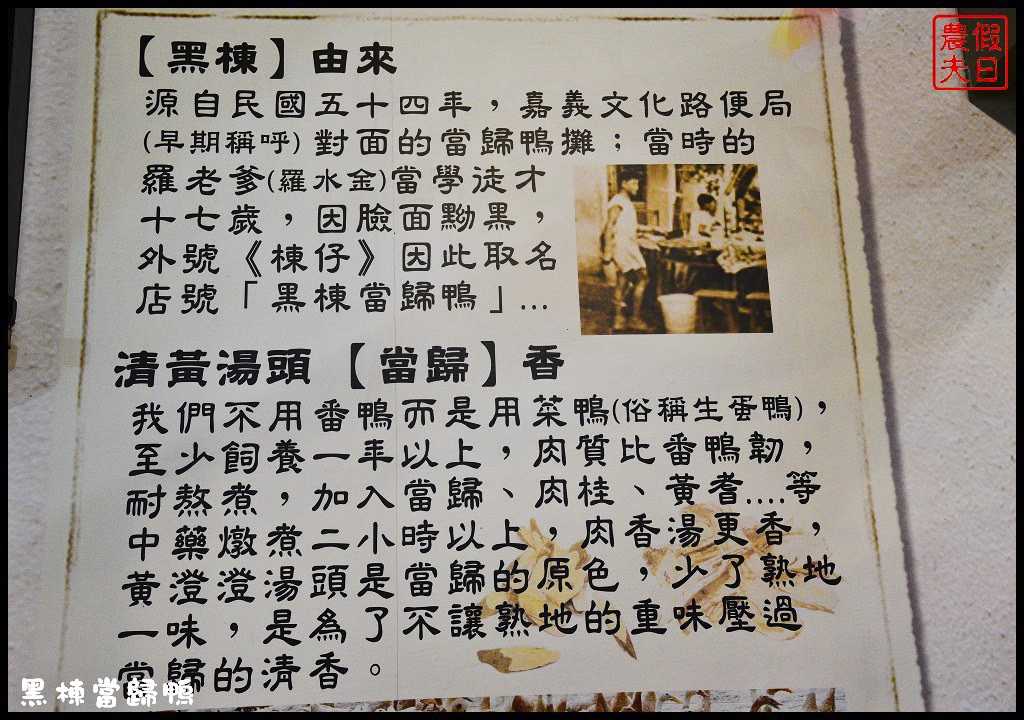 【黑棟】由來
源自民國五十四年，嘉義文化路便局
(早期稱呼)對面的當歸鴨攤；當時的
羅老爹(羅水金)當學徒才
十七歲，因臉面黝黑，
外號《棟仔》因此取名
店號「黑棟當歸鴨」...
清黃湯頭【當歸】香
我們不用番鴨而是用菜鴨(俗稱生蛋鴨)，
至少飼養一年以上，肉質比番鴨韌，
耐熬煮，加入當歸、肉桂、黃耆....等
中藥燉煮二小時以上，肉香湯更香，
黃澄澄湯頭是當歸的原色，少了熟地
一味，是為了不讓熟地的重味壓過
當歸的清香。
黑棟當歸鴨
假日農夫